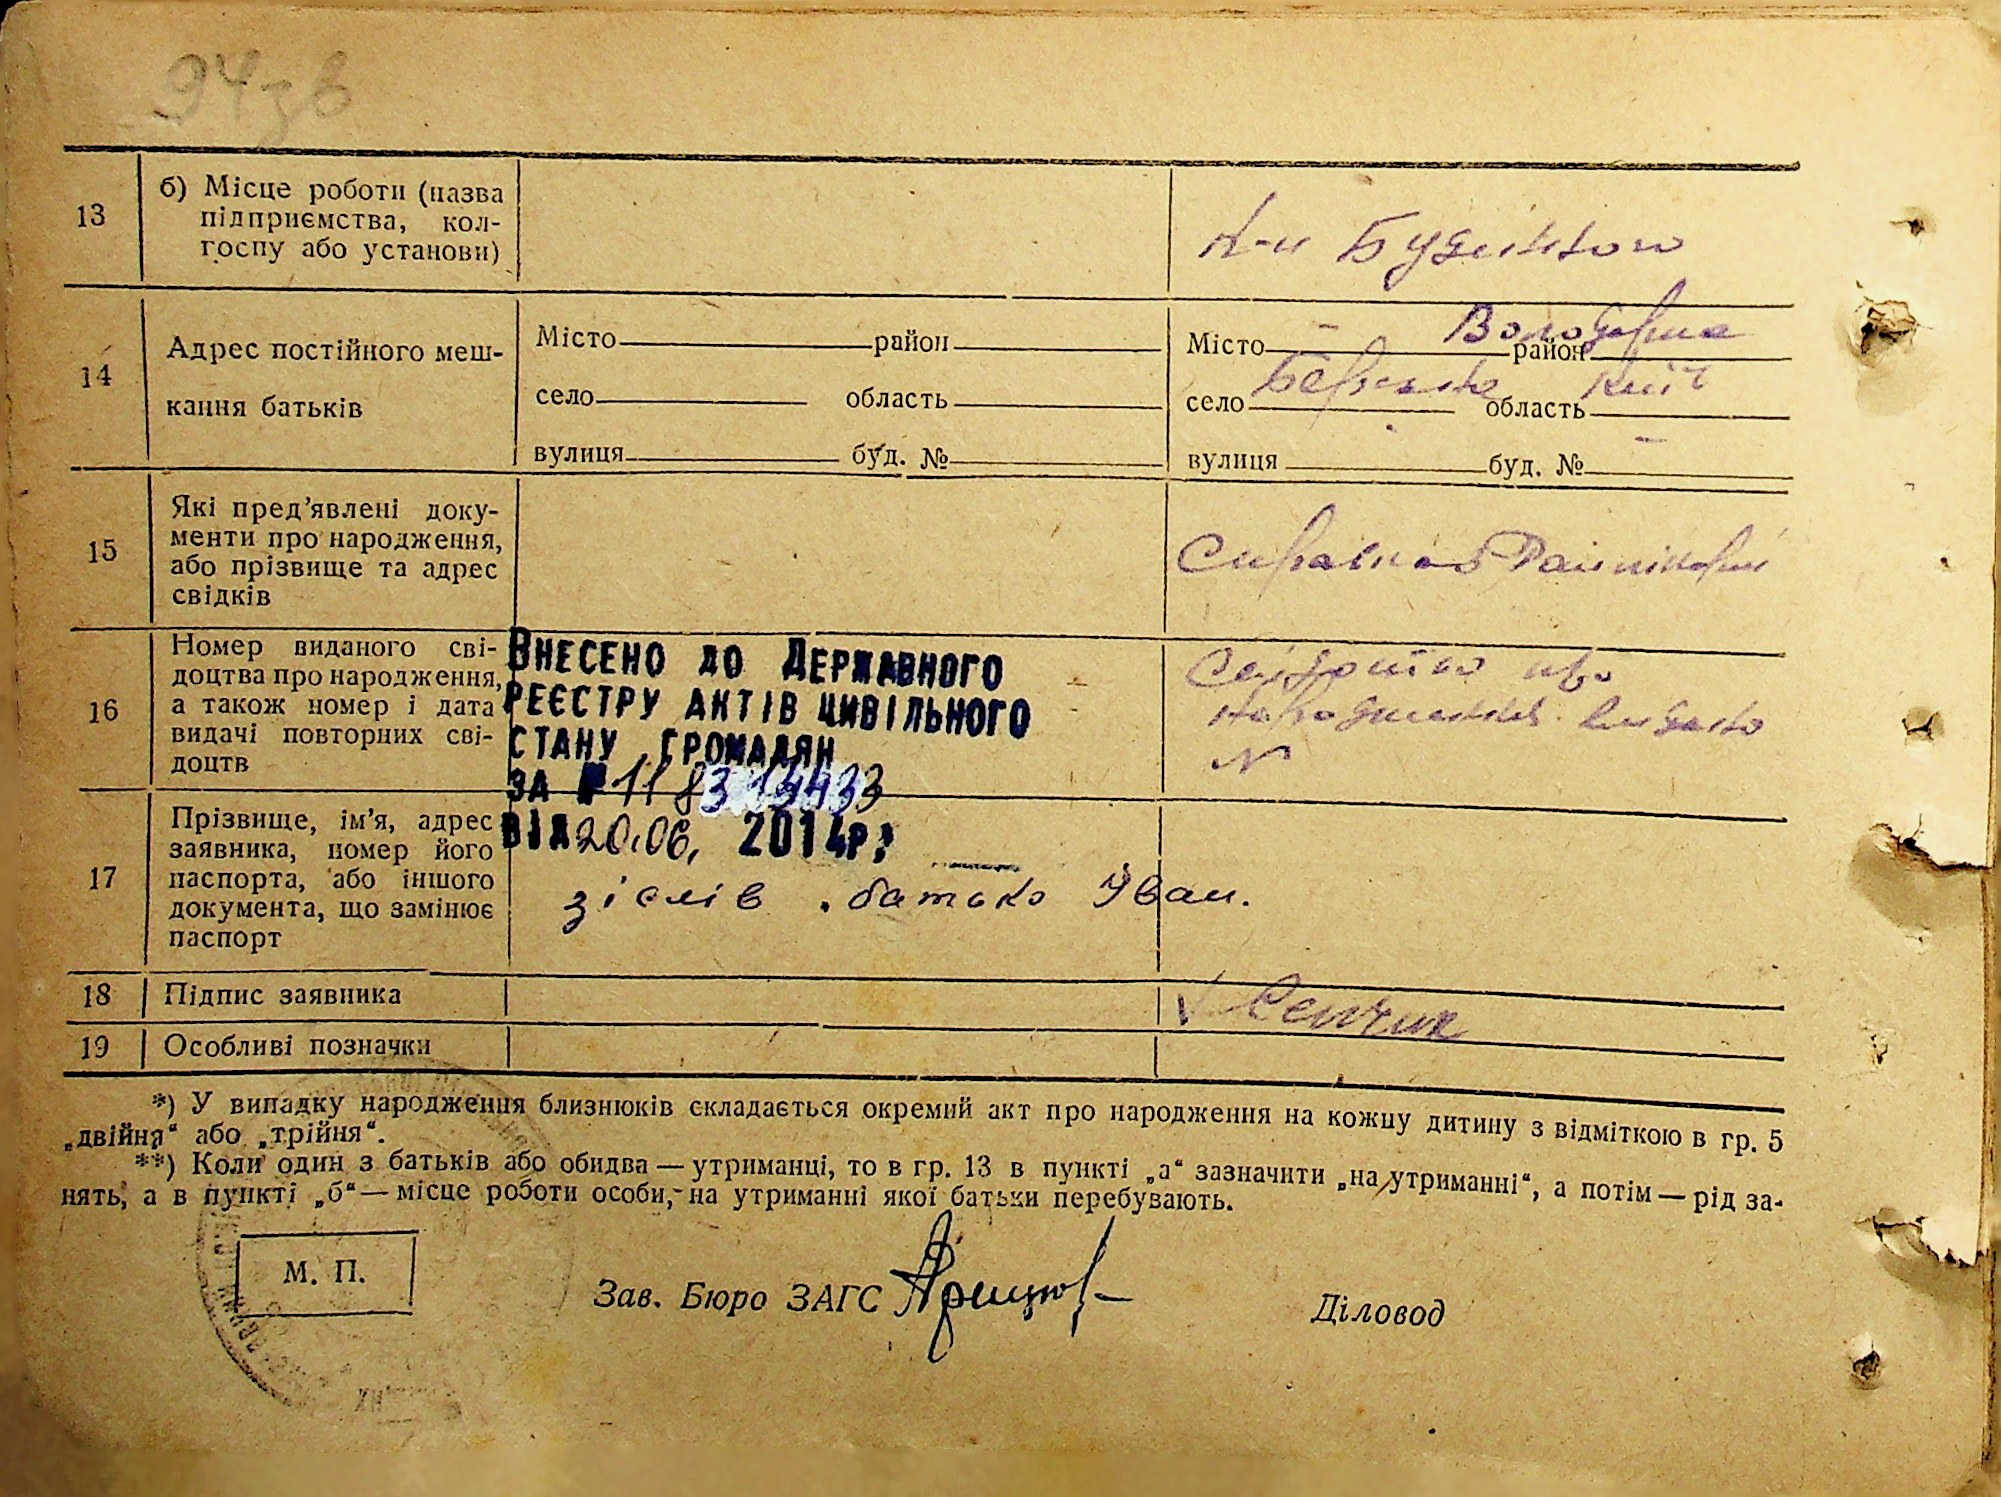 94зв
13
б) Місце роботи (назва
підприємства, кол-
госпу або установи)
14
Адрес постійного меш-
кання батьків
Місто район
село область
вулиця буд. №
Місто район Володарка
село область Київ
вулиця буд. №
15
Які пред’явлені доку-
менти про народження,
або прізвище та адрес
свідків
16
Номер виданого сві-
доцтва про народження,
а також номер і дата
видачі повторних сві-
доцтв
ВНЕСЕНО ДО ДЕРЖАВНОГО
РЕЄСТРУ АКТІВ ЦИВІЛЬНОГО
СТАНУ ГРОМАДЯН
ЗА №
ВІД 20.06. 2014р.
Свідоцтво про
народження видано
№
17
Прізвище, ім’я, адрес
заявника, номер його
паспорта, або іншого
документа, що замінює
паспорт
зі слів батько Іван.
18
Підпис заявника
19
Особливі позначки
*) У випадку народження близнюків складається окремий акт про народження на кожну дитину з відміткою в гр. 5
„двійня“ або „трійня“.
**) Коли один з батьків або обидва — утриманці, то в гр. 13 в пункті „а“ зазначити „на утриманні“, а потім — рід за-
нять, а в пункті „б“ — місце роботи особи, на утриманні якої батьки перебувають.
М. П.
Зав. Бюро ЗАГС
Діловод